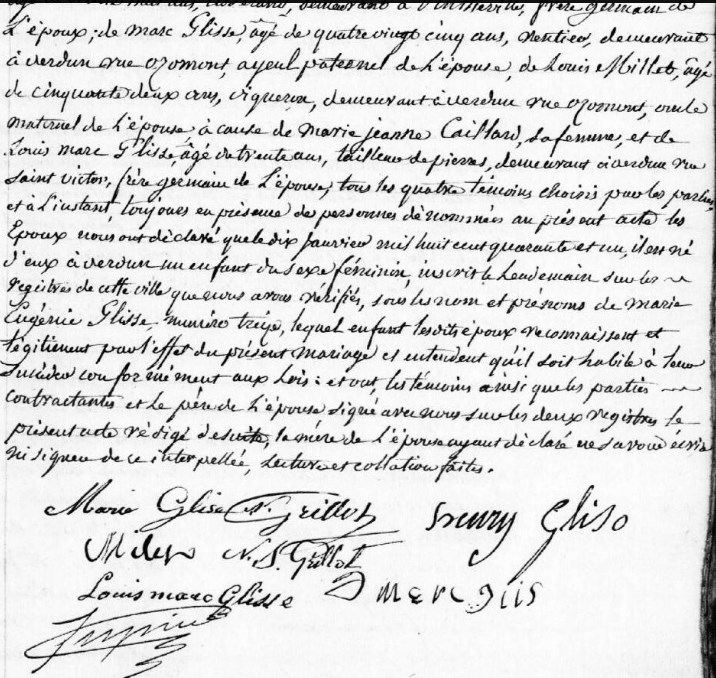 ans, demeurant à frère germain de
L'époux; de Marc Glisse, âgé de quatre vingt cinq ans, rentier, demeurant
à verdun rue ozomont, ayeul paternel de L'épouse, de Louis Millet, âgé
de cinquante deux ans, vigneron, demeurant à verdun rue ozomont, oncle
maternel de L'épouse à cause de Marie jeanne Caillard, sa femme, et de
Louis marc Glisse, âgé de trente ans, tailleur de pierres, demeurant à verdun rue
saint victor, frère germain de L'épouse, tous les quatre témoins choisis par les parties,
et à l'instant, toujours en présence des personnes dénommées au présent acte les
Epoux nous ont déclaré que le dix janvier mil huit cent quarante et un, il est né
d'eux à verdun un enfant du sexe féminin, inscrit le Lendemain sur les
registres de cette ville que nous avons vérifiés, sous les nom et prénoms de Marie
Eugénie Glisse, numéro treize, lequel enfant lesdits époux reconnaissent et
légitiment par l'effet du présent Mariage et entendent qu'il soit habile à leur
succéder conformément aux Lois: et ont, les témoins ainsi que les parties
contractantes et le père de L'épouse signé avec nous sur les deux registres le
présent acte rédigé desuite, la mère de l'épouse ayant déclaré ne savoir écrire
ni signer de ce interpellée, Lecture et collation faites.
Marc Glise N. Grillot
N. S. Grillot
Louis marc Glisse